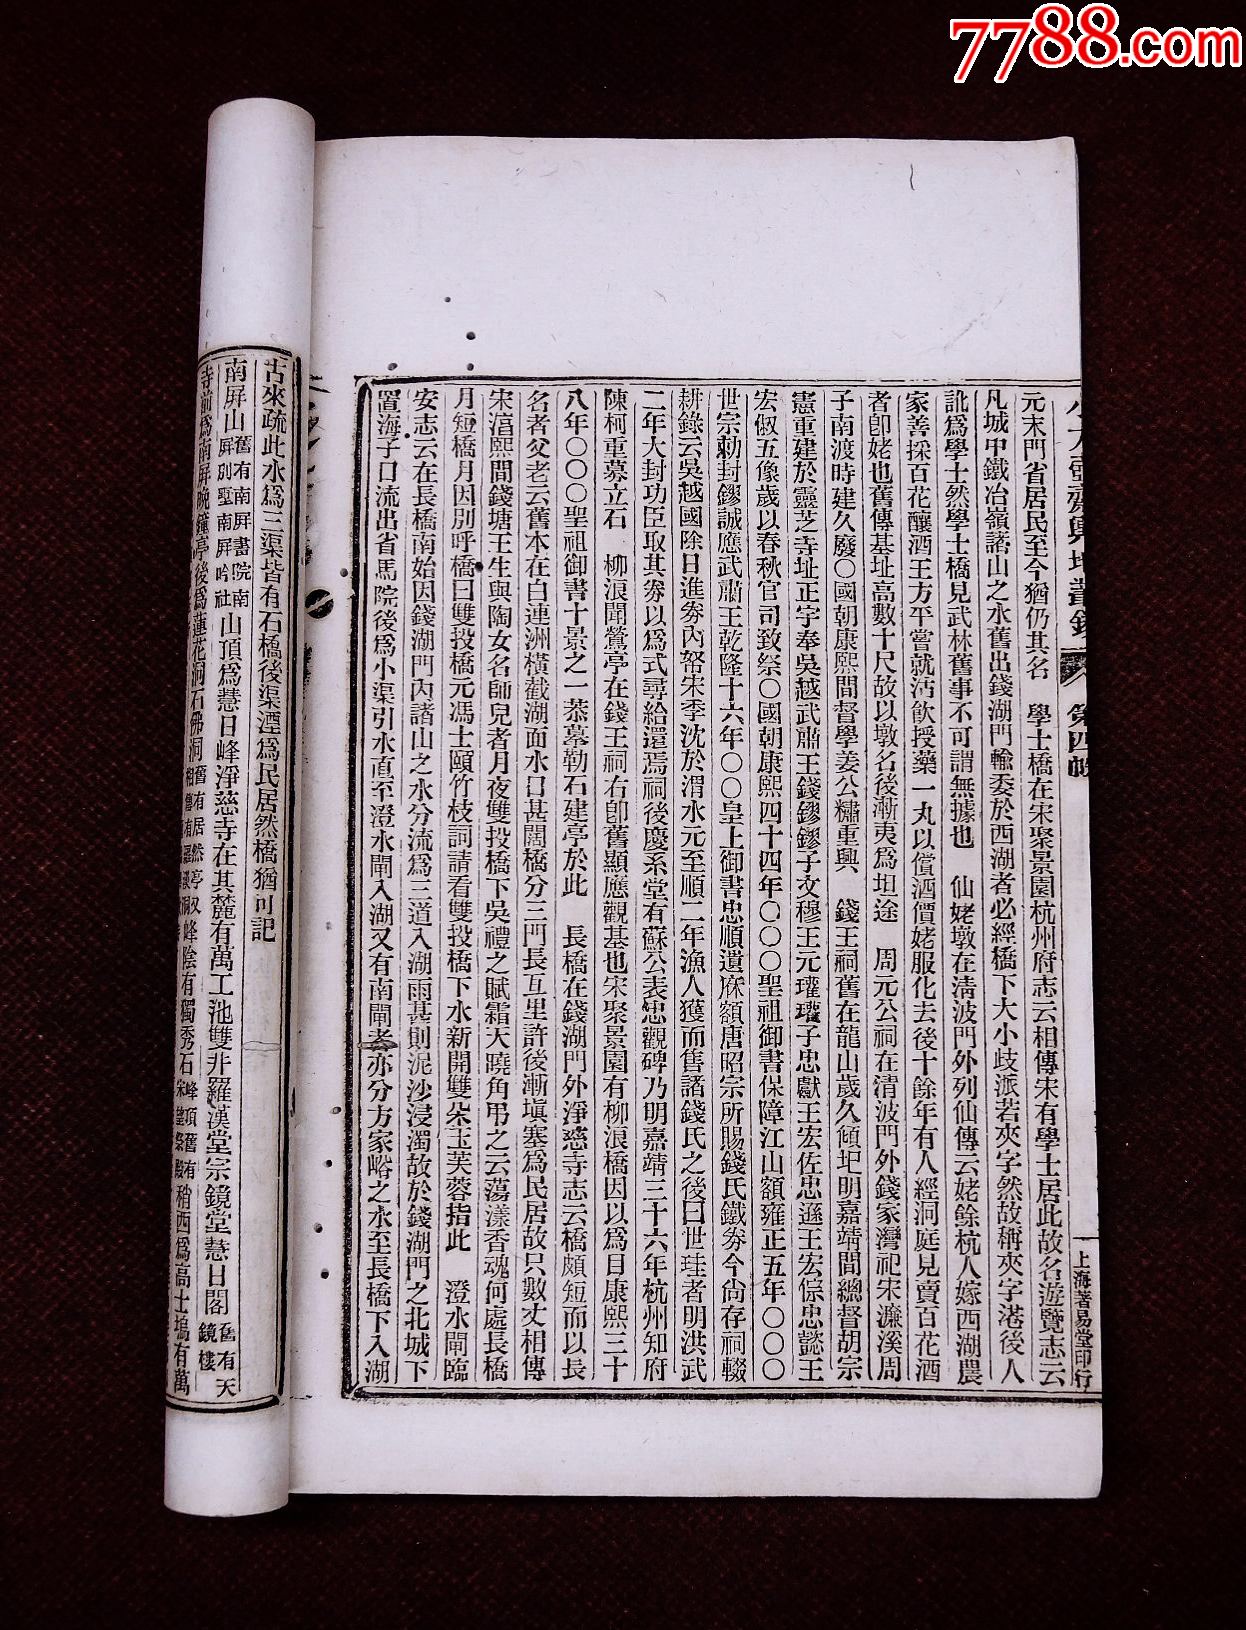 7788.com
小方壺齋輿地叢鈔 第四帙 上海著易堂印行
元末門省居民至今猶仍其名 學士橋在宋聚景園杭州府志云相傳宋有學士居此故名遊覽志云
凡城中鐵冶嶺諸山之水舊出錢湖門輸委於西湖者必經橋下大小歧派若夾字然故稱夾字港後人
訛爲學士然學士橋見武林舊事不可謂無據也 仙姥墩在清波門外列仙傳云姥餘杭人嫁西湖農
家善採百花釀酒王方平嘗就沽飲授藥一丸以償酒價姥服化去後十餘年有人經洞庭見賣百花酒
者卽姥也舊傳基址高數十尺故以墩名後漸夷爲坦途 周元公祠在清波門外錢家灣祀宋濂溪周
子南渡時建久廢○國朝康熙間督學姜公橚重興 錢王祠舊在龍山歲久傾圮明嘉靖間總督胡宗
憲重建於靈芝寺址正宇奉吳越武肅王錢鏐鏐子文穆王元瓘瓘子忠獻王宏佐忠遜王宏倧忠懿王
宏俶五像歲以春秋官司致祭○國朝康熙四十四年○○○聖祖御書保障江山額雍正五年○○○
世宗勅封鏐誠應武肅王乾隆十六年○○皇上御書忠順遺庥額唐昭宗所賜錢氏鐵券今尙存祠輟
耕錄云吳越國除日進券內帑宋季沈於渭水元至順二年漁人獲而售諸錢氏之後曰世珪者明洪武
二年大封功臣取其券以爲式尋給還焉祠後慶系堂有蘇公表忠觀碑乃明嘉靖三十六年杭州知府
陳柯重摹立石 柳浪聞鶯亭在錢王祠右卽舊顯應觀基也宋聚景園有柳浪橋因以爲目康熙三十
八年○○○聖祖御書十景之一恭摹勒石建亭於此 長橋在錢湖門外淨慈寺志云橋頗短而以長
名者父老云舊本在白連洲橫截湖面水口甚闊橋分三門長亙里許後漸塡塞爲民居故只數丈相傳
宋淳熙間錢塘王生與陶女名師兒者月夜雙投橋下吳禮之賦霜天曉角弔之云蕩漾香魂何處長橋
月短橋月因別呼橋曰雙投橋元馮士頤竹枝詞請看雙投橋下水新開雙朵玉芙蓉指此 澄水閘臨
安志云在長橋南始因錢湖門內諸山之水分流爲三道入湖雨甚則泥沙浸濁故於錢湖門之北城下
置海子口流出省馬院後爲小渠引水直至澄水閘入湖又有南閘者亦分方家峪之水至長橋下入湖
古來疏此水爲三渠皆有石橋後渠湮爲民居然橋猶可記
南屏山舊有南屏書院南屏別墅南屏吟社山頂爲慧日峰淨慈寺在其麓有萬工池雙井羅漢堂宗鏡堂慧日閣舊有天鏡樓
寺前爲南屏晚鐘亭後爲蓮花洞石佛洞舊有居然亭峰陰有獨秀石峰頂舊有稍西爲高士塢有萬